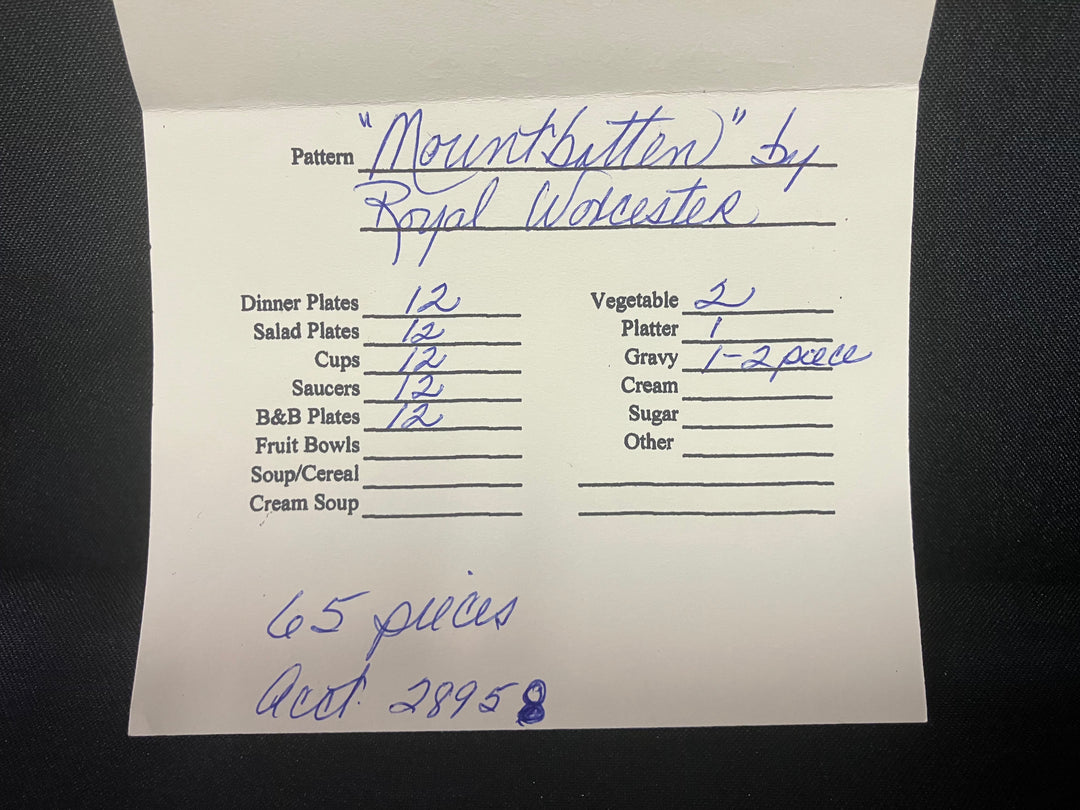 Pattern "Mountbatten" by
Royal Worcester
Dinner Plates 12
Salad Plates 12
Cups 12
Saucers 12
B&B Plates 12
Fruit Bowls
Soup/Cereal
Cream Soup
Vegetable 2
Platter 1
Gravy 1-2 piece
Cream
Sugar
Other
65 pieces
Acct 28958